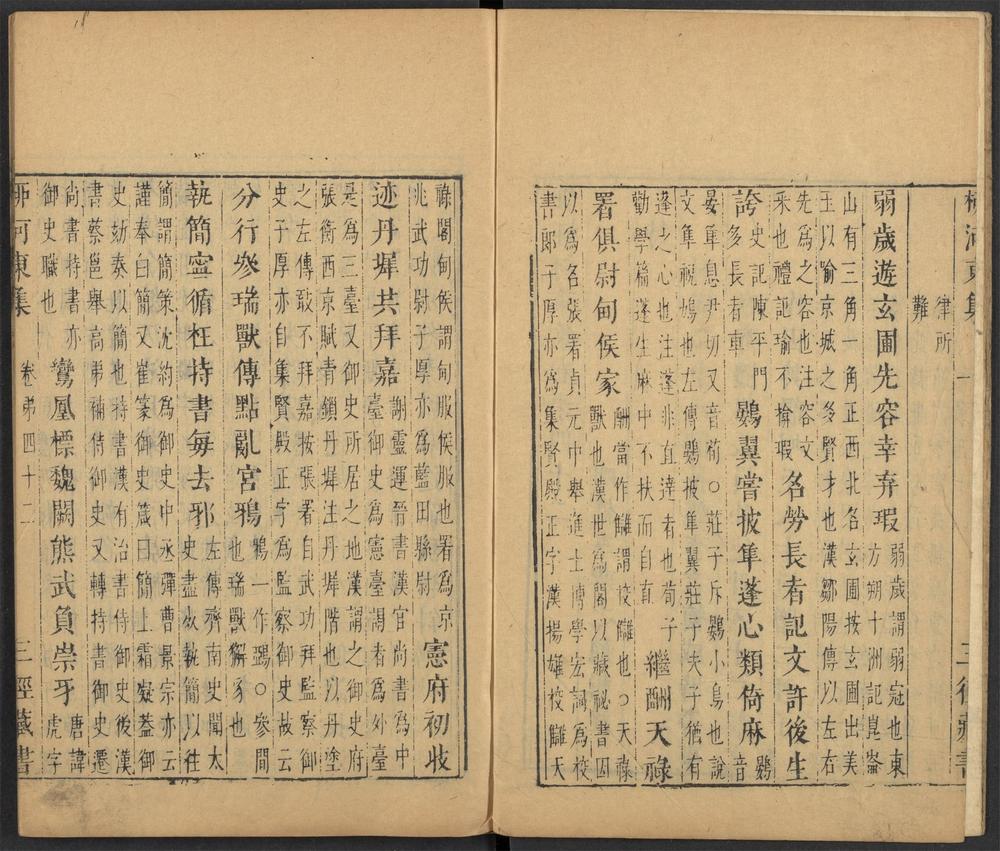 律所
難
弱歲遊玄圃先容幸弃瑕
弱歲謂弱冠也東
方朔十洲記崑崙
山有三角一角正西北名玄圃按玄圃出美
玉以喻京城之多賢才也漢鄒陽傳以左右
先為之容也注容文
釆也禮記瑜不揜瑕
名勞長者記文許後生
誇
史記陳平門
多長者車
鷃翼嘗披隼蓬心類倚麻
鷃
音
晏隼息尹切又音荀○莊子斥鷃小鳥也說
文隼祝鳩也左傳鷃披隼翼莊子夫子猶有
蓬之心也注蓬非直達者也荀子
勸學篇蓬生麻中不扶而自直
繼酬天祿
署俱尉甸侯家
酬當作讎謂校讎也○天祿
獸也漢世為閣以藏秘書因
以為名張署貞元中舉進士博學宏詞為校
書郎子厚亦為集賢殿正字漢揚雄校讎天
祿閣甸侯謂甸服侯服也署為京
兆武功尉子厚亦為藍田縣尉
憲府初收
迹丹墀共拜嘉
謝靈運晉書漢官尚書為中
臺御史為憲臺謁者為外臺
是為三臺又御史所居之地漢謂之御史府
張衡西京賦青鎖丹墀注丹墀階也以丹塗
之左傳敢不拜嘉按張署自武功拜監察御
史子厚亦自集賢殿正字為監察御史故云
分行參瑞獸傳點亂宮鴉
鴉一作鵶○參間
也瑞獸獬豸也
執簡寧循枉持書每去邪
左傳齊南史聞太
史盡死執簡以往
簡謂簡策沈約為御史中丞彈曹景宗亦云
謹奉白簡又崔篆御史箴曰簡上霜凝蓋御
史劾奏以簡也持書漢有治書侍御史後漢
書蔡邕舉高弟補侍御史又轉持書御史遷
尚書持書亦
御史職也
鸞凰標魏闕熊武負崇牙
唐諱
虎字
柳河東集 卷弟四十二 三徑藏書